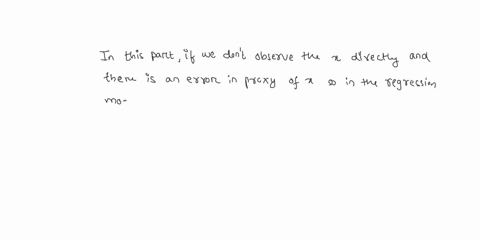 In this part, if we don't observe the x directly and
there is an error in proxy of x so in the regression
mo-